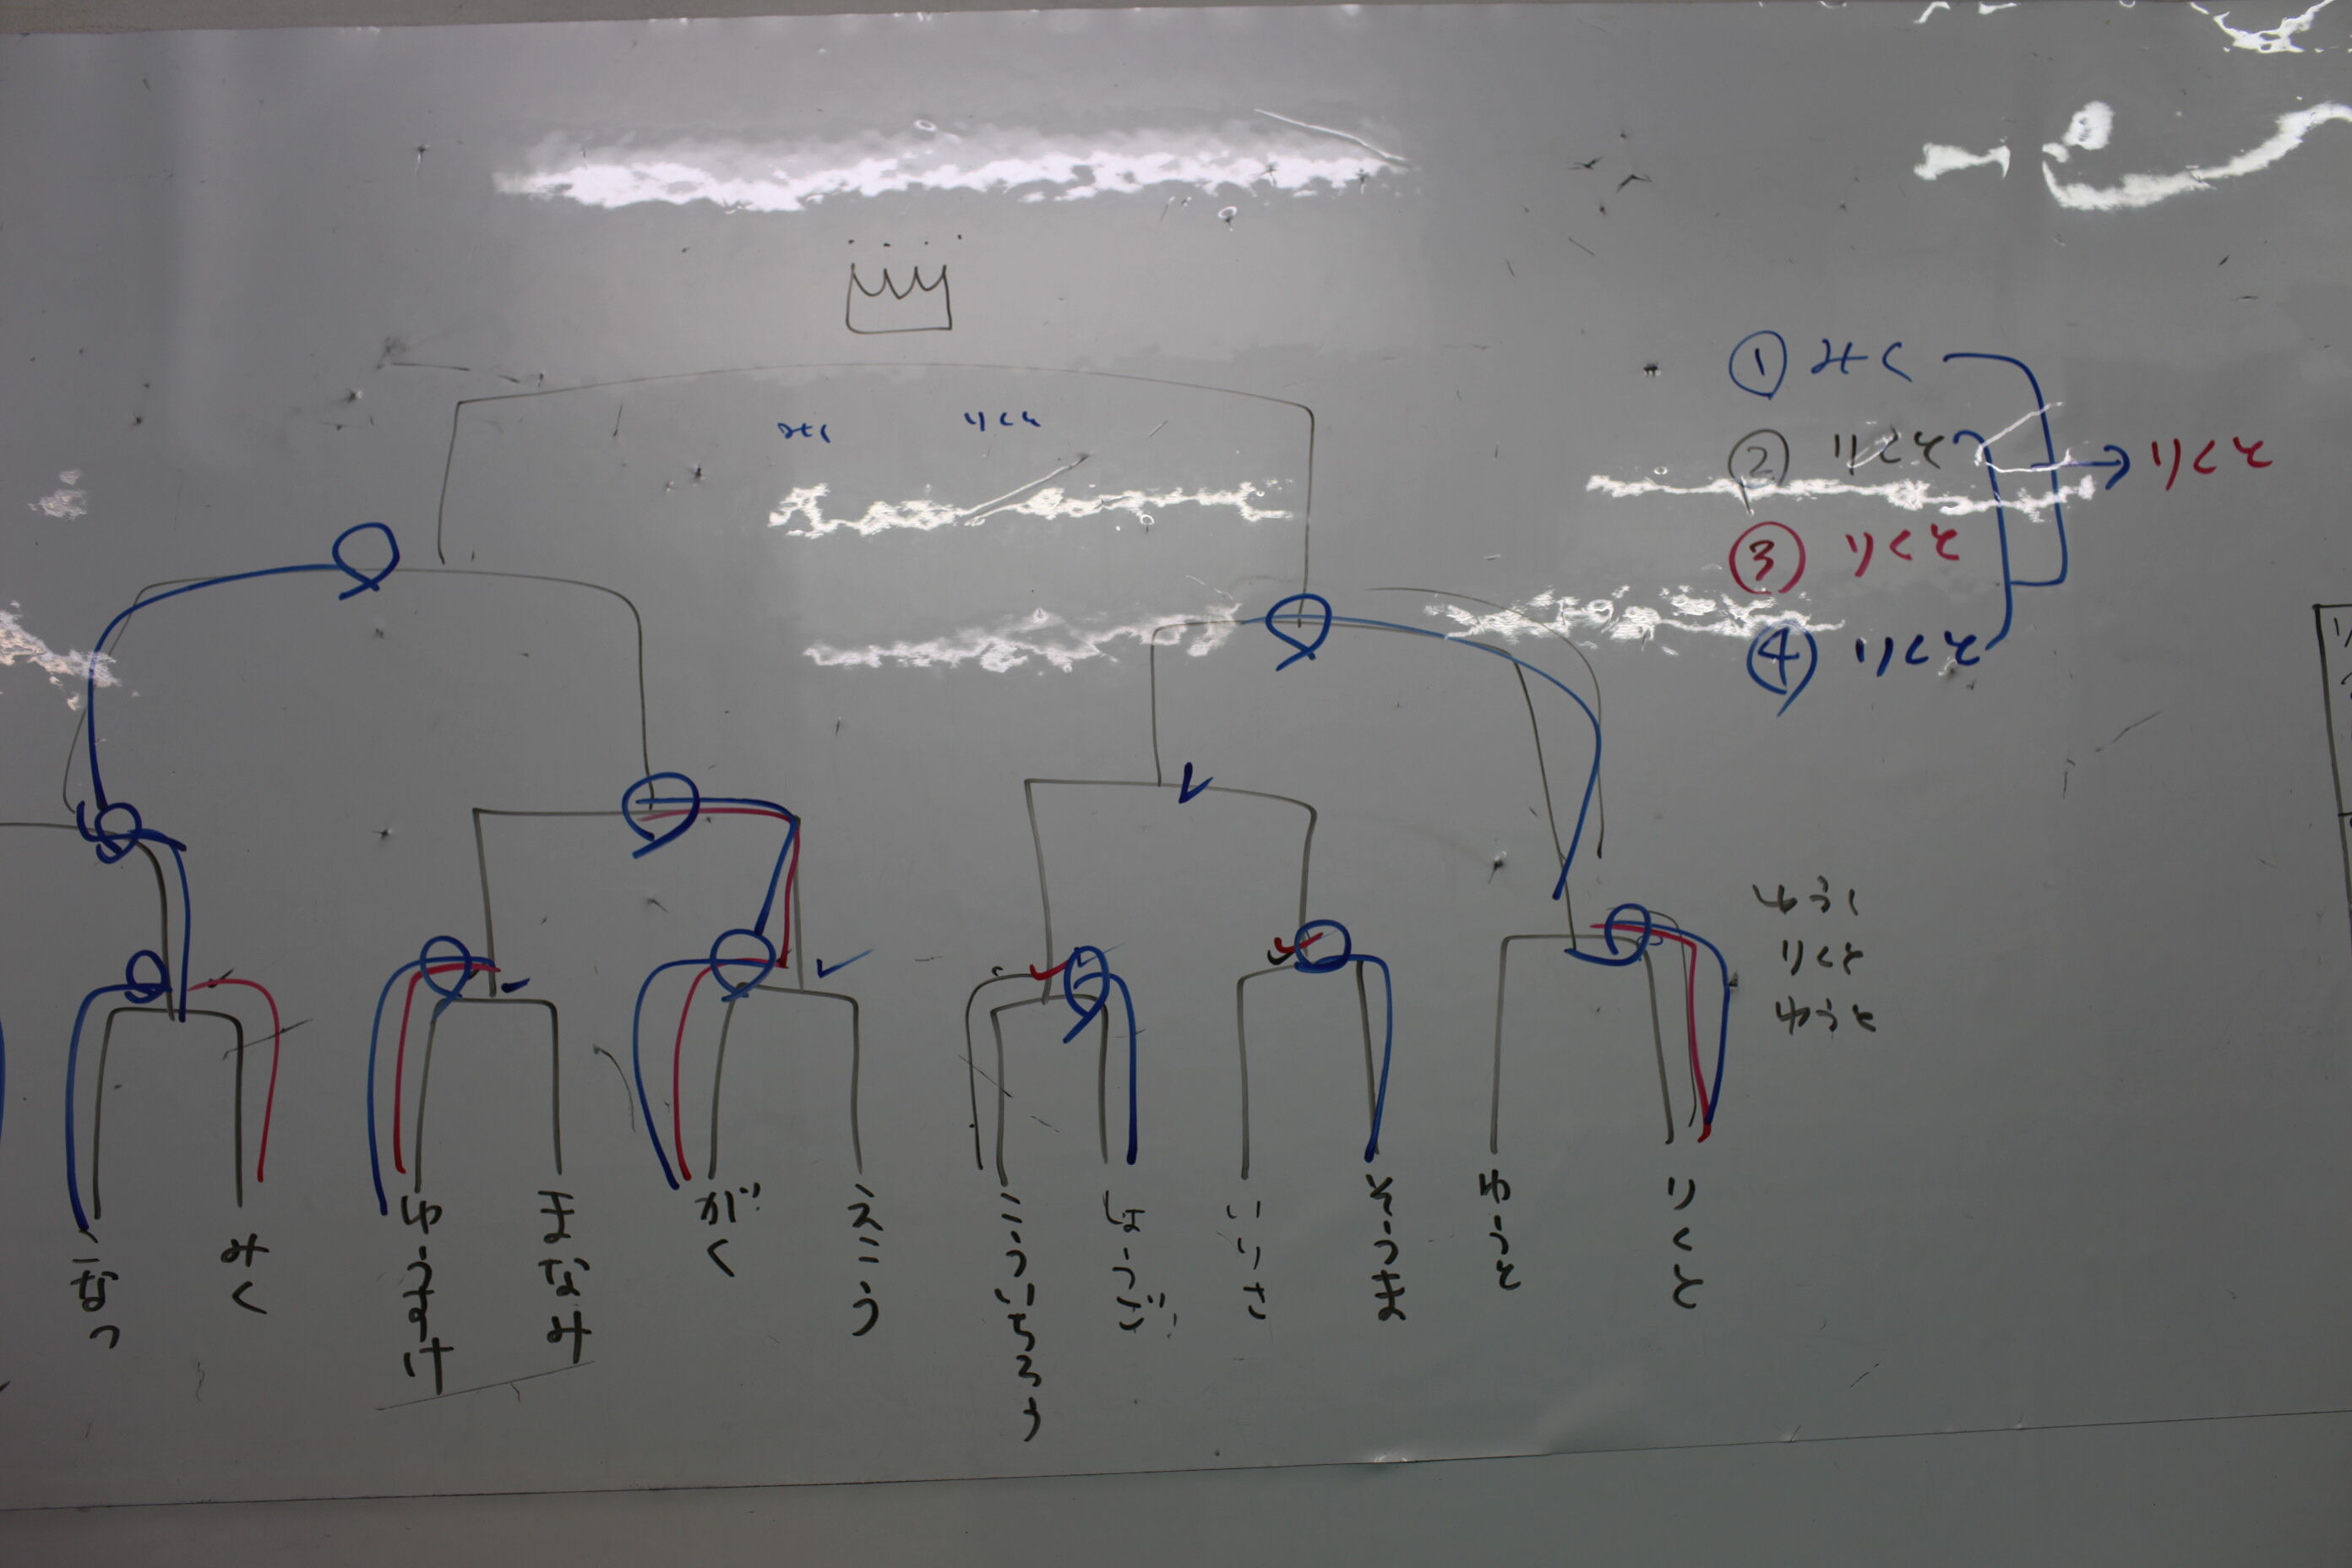 みく
りくと
① みく
② りくと
③ りくと
→ りくと
④ りくと
ゆうく
りくと
ゆうと
みく
ゆうすけ
まなみ
がく
えこう
こういちろう
しょうご
いりさ
そうま
ゆうと
りくと